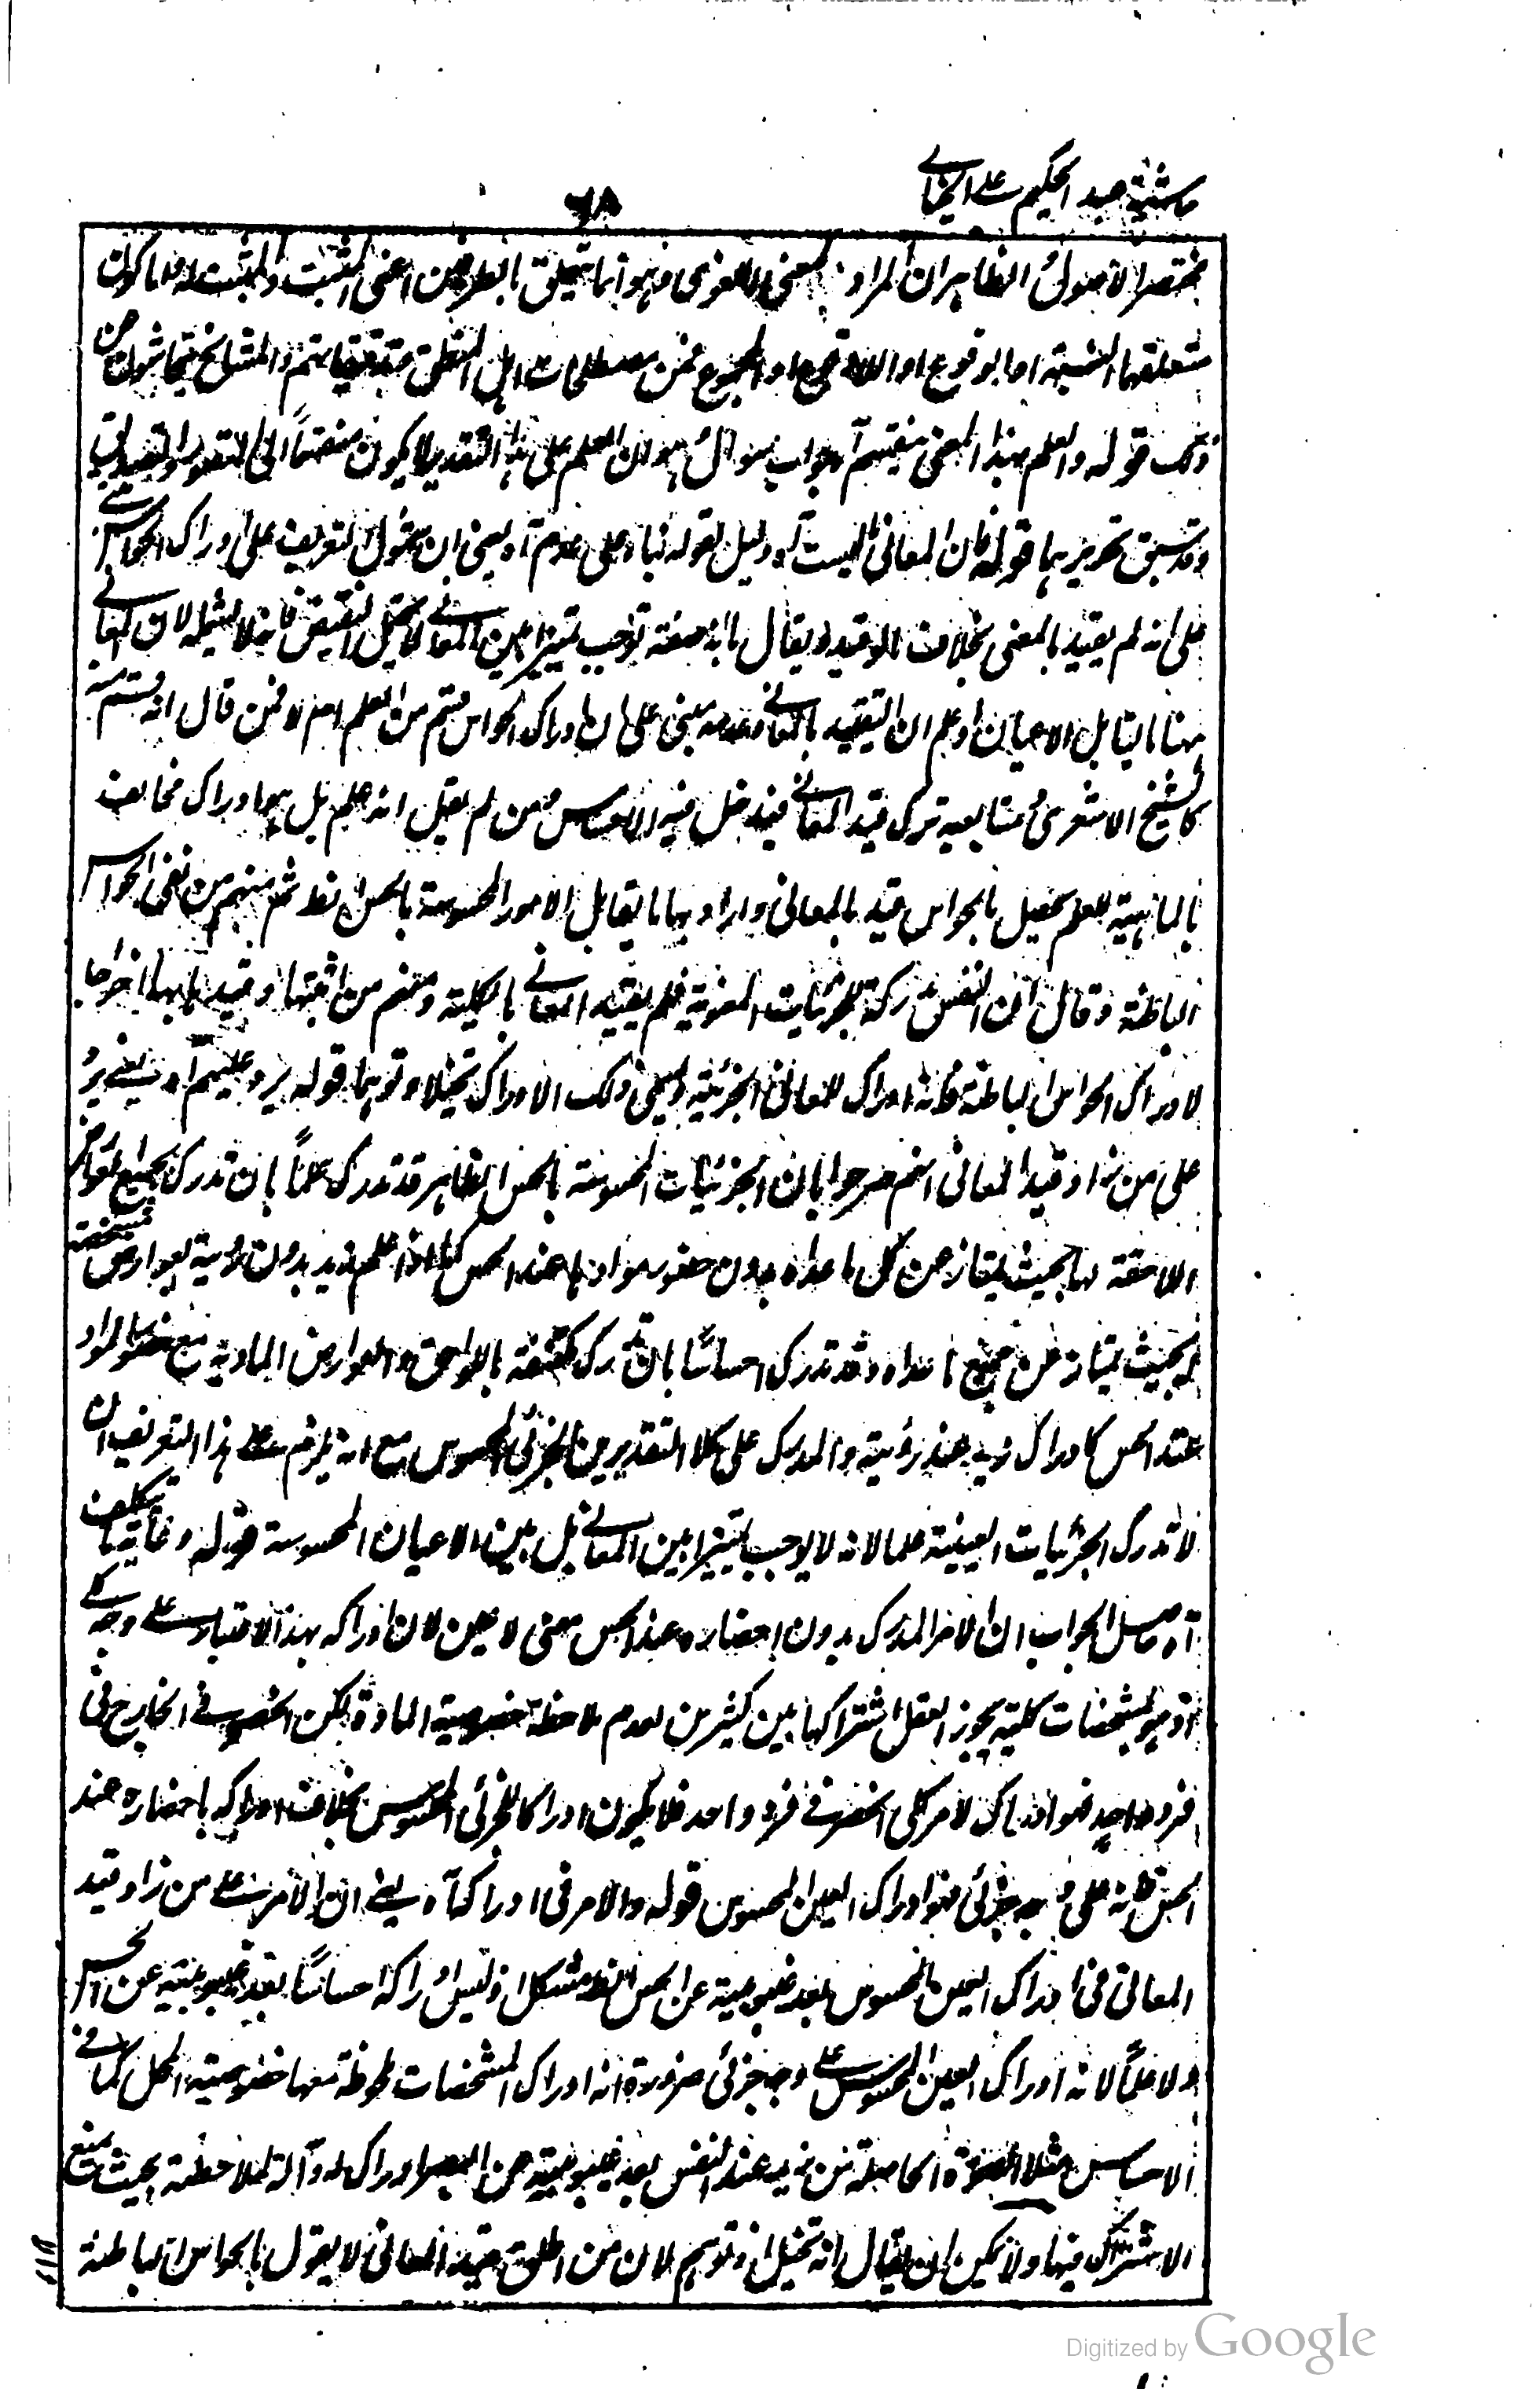 حاشية عبد الحكيم على الخيالي
٦٨
مختصر الاصول الظاهر ان المراد بالمعنى اللغوى وهو انما يتعلق بالطرفين اعنى المثبت والمثبت له واما كون
متعلقها النسبة اما بوقوع او اللاوقوع او المجموع فمن مصطلحات اهل المنطق وتدقيقاتهم والمشايخ يتحاشون عن
ذلك قوله والعلم بهذا المعنى ينقسم آه جواب سوال هو ان العلم على هذا التقدير لا يكون منقسما الى التصور والتصديق
وقد سبق تحريرهما قوله فان المعانى ليست آه دليل لقوله بناء على عدم آه يعنى ان شمول التعريف على ادراك الحواس
على انه لم يقيد بالمعنى بخلاف ما لو قيد ويقال بانه صفة توجب تميزا بين المعانى لا يحتمل النقيض فانه لا يشمله لان المعانى
ههنا ما يقابل الاعيان اعلم ان التقييد بالمعانى وعدمه مبنى على ان ادراك الحواس قسم من العلم ام لا فمن قال انه قسم منه
كالشيخ الاشعرى ومتابعيه ترك قيد المعانى فيدخل فيه الاحساس ومن لم يقل انه علم بل هو ادراك مخالف
بالماهية للعلم يحصل بالحواس قيد بالمعانى واراد بها ما يقابل الامور المحسوسة بالحس الظ ثم منهم من نفى الحواس
الباطنة وقال ان النفس مدركة للجزئيات المعنوية فلم يقيد المعانى بالكلية ومنهم من اثبتها وقيد بها اخراجا
لادراك الحواس الباطنة فانه ادراك للمعانى الجزئية ويسمى ذلك الادراك تخيلا وتوهما قوله يرد عليهم آه يعنى يرد
على من زاد قيد المعانى انهم صرحوا بان الجزئيات المحسوسة بالحس الظاهر قد تدرك علما بان تدرك بجميع العوارض
اللاحقة لها بحيث يمتاز عن كل ما عداه بدون حضور موادها عند الحس كما اذا علم زيد بدون رؤية بعوارض مشخصة
له بحيث يمتاز عن جميع ما عداه وقد تدرك احساسا بان تدرك مكتنفة باللواحق والعوارض المادية مع حضور المواد
عند الحس كادراك زيد عند رؤيته والمدرك على كلا التقديرين الجزئى المحسوس مع انه يلزم على هذا التعريف ان
لا تدرك الجزئيات العينية علما لانه لا يوجب تميزا بين المعانى بل بين الاعيان المحسوسة قوله وغاية ما يتكلف
آه حاصل الجواب ان الامر المدرك بدون احضاره عند الحس معنى لا عين لان ادراكه بهذا الاعتبار على وجه كلى
اذ هو بمشخصات كلية يجوز العقل اشتراكها بين كثيرين لعدم ملاحظة خصوصية المادة لكن انحصر فى الخارج فى
فرد واحد فهو ادراك لامر كلى انحصر فى فرد واحد فلا يكون ادراكا للجزئى المحسوس بخلاف ادراكه باحضاره عند
الحس فانه على وجه جزئى فهو ادراك العين المحسوس قوله والامر فى ادراكنا آه يعنى ان الامر على من زاد قيد
المعانى فى ادراك العين المحسوس بعد غيبوبيته عن الحس الظ مشكل اذ ليس ادراكه احساسا بعد غيبوبيته عن الحس
ولا علما لانه ادراك العين المحسوس على وجه جزئى ضرورة انه ادراك المشخصات ملحوظة معها خصوصية المحل كما فى
الاحساس مثلا الصورة الحاصلة من زيد عند النفس بعد غيبوبيته عن البصر ادراك له وآلة لملاحظته بحيث يمنع
الاشتراك فيها ولا يمكن ان يقال انه تخيل او توهم لان من اطلق قيد المعانى لا يقول بالحواس الباطنة
Digitized by Google